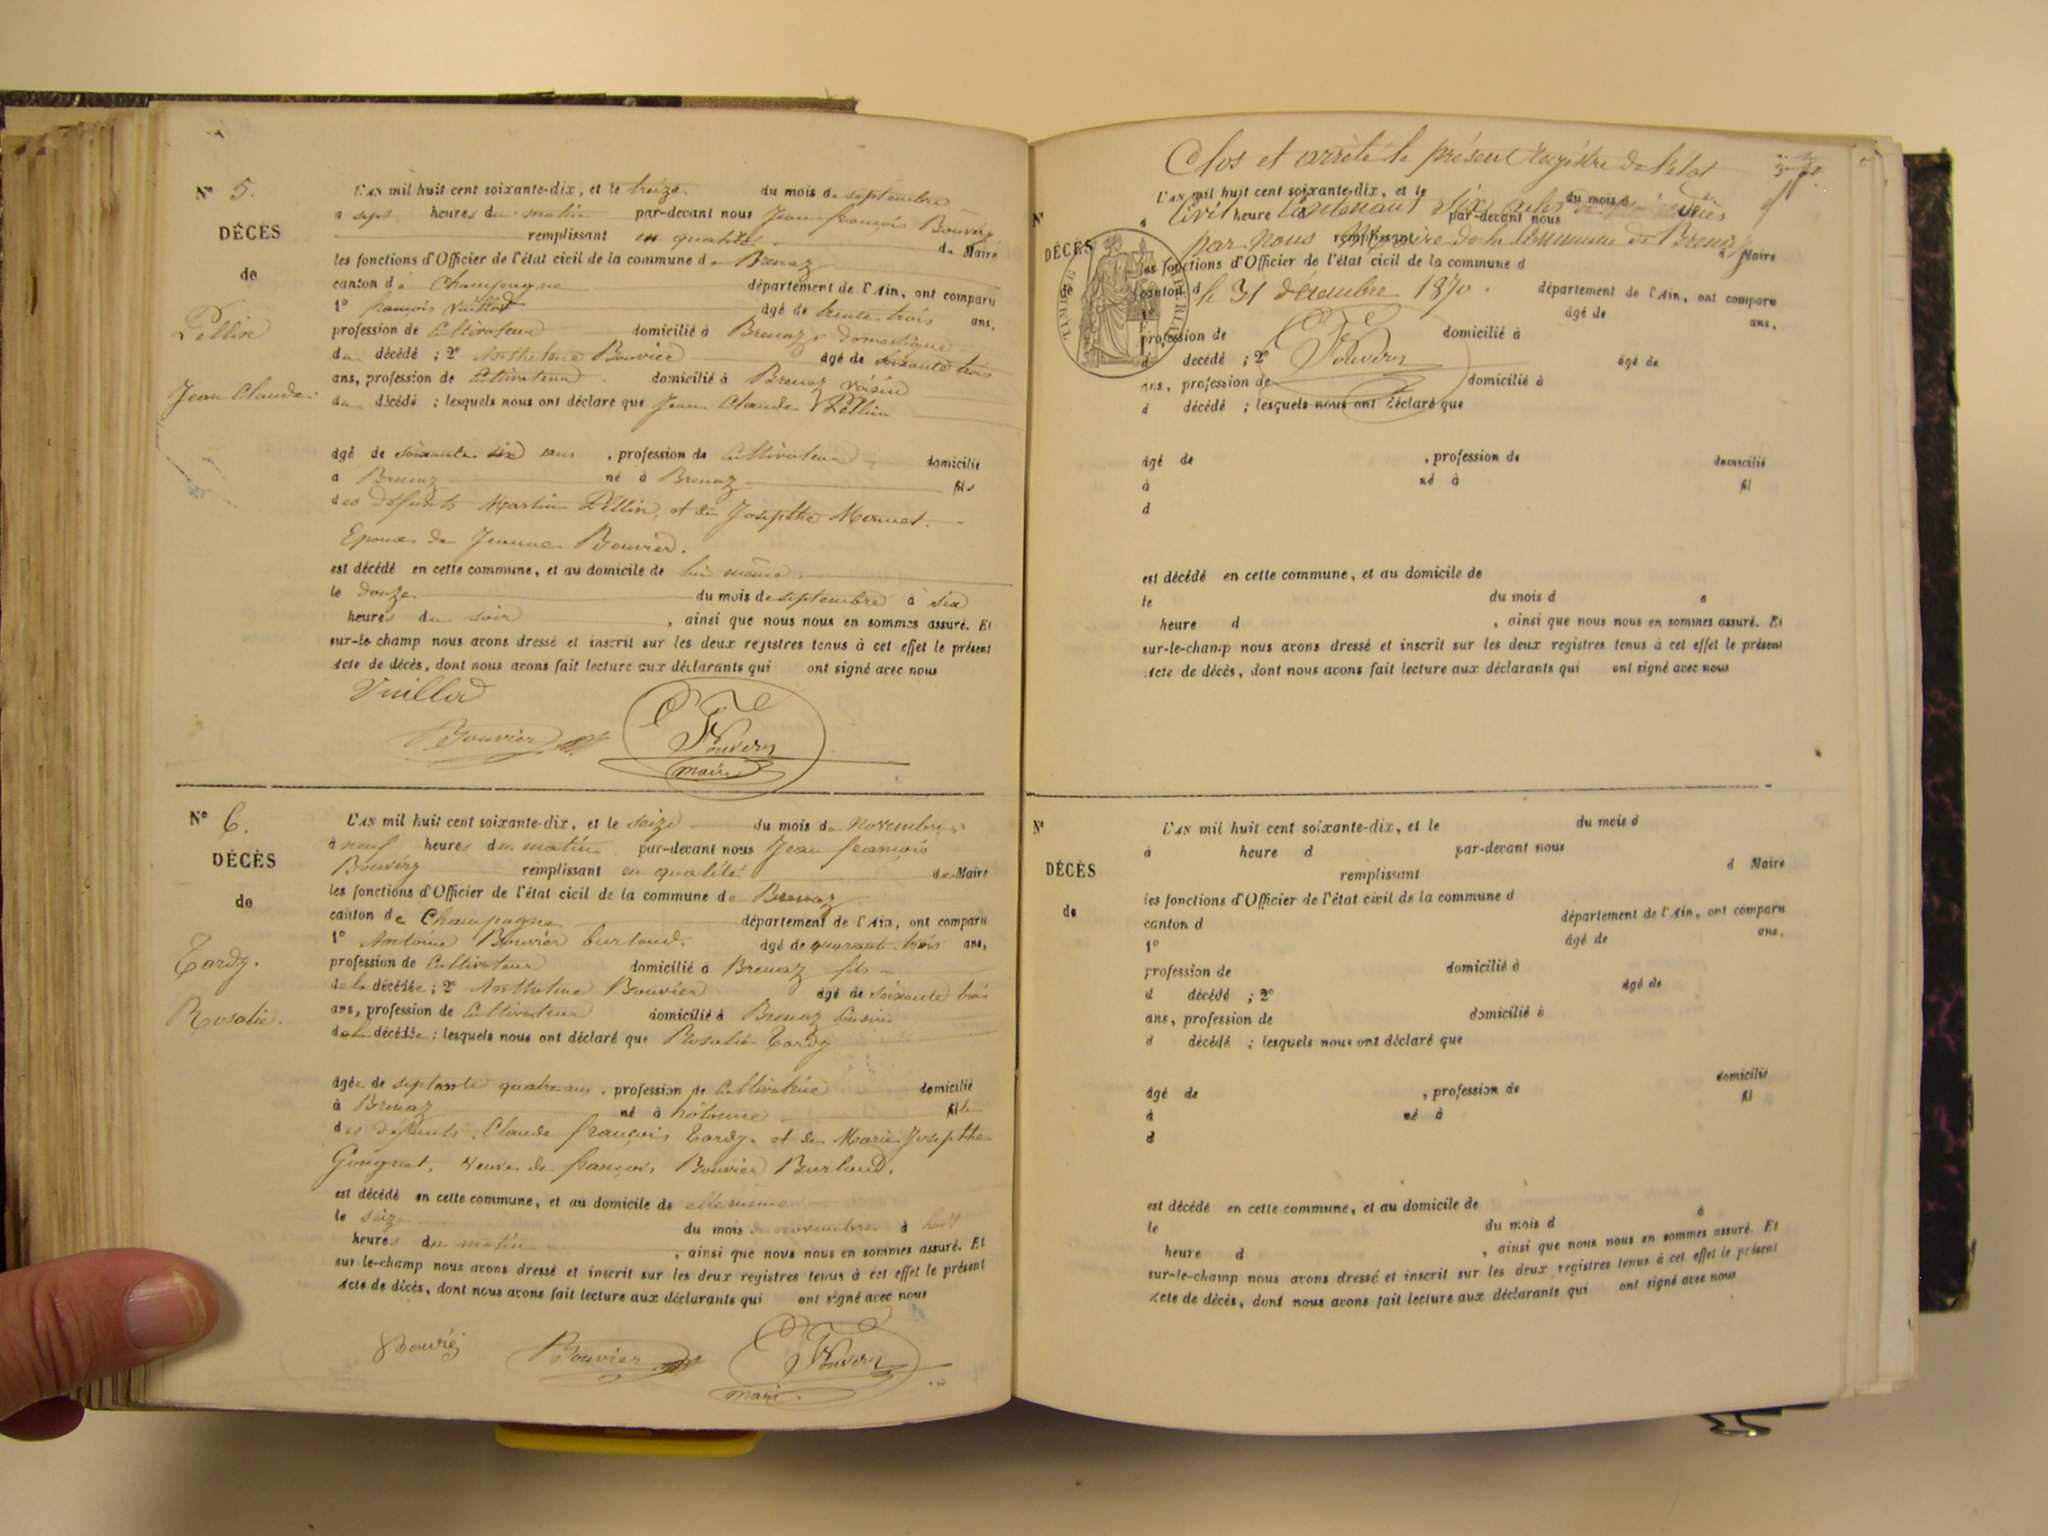 N° 5.
DÉCÈS
de
Pellin
Jean Claude.
L'AN mil huit cent soixante-dix, et le treize du mois de septembre
à sept heures du matin par-devant nous Jean françois Bouvery
remplissant en qualité de Maire
les fonctions d'Officier de l'état civil de la commune de Brenaz
canton de Champagne département de l'Ain, ont comparu
1° françois Vuillod âgé de trente trois ans,
profession de Cultivateur domicilié à Brenaz domestique
du décédé ; 2° Anthelme Bouvier âgé de soixante trois
ans, profession de Cultivateur domicilié à Brenaz voisin
du décédé ; lesquels nous ont déclaré que Jean Claude Pellin
âgé de soixante six ans , profession de Cultivateur domicilié
à Brenaz né à Brenaz fils
des défunts Martin Pellin, et de Josephte Monnet.
Epoux de Jeanne Bouvier.
est décédé en cette commune, et au domicile de lui même
le douze du mois de septembre à six
heures du soir , ainsi que nous nous en sommes assuré. Et
sur-le-champ nous avons dressé et inscrit sur les deux registres tenus à cet effet le présent
Acte de décès, dont nous avons fait lecture aux déclarants qui ont signé avec nous
Vuillod
Bouvier
Bouvery
maire
N° 6.
DÉCÈS
de
Tardy.
Rosalie.
L'AN mil huit cent soixante-dix, et le seize du mois de Novembre
à neuf heures du matin par-devant nous Jean françois
Bouvery remplissant en qualité de Maire
les fonctions d'Officier de l'état civil de la commune de Brenaz
canton de Champagne département de l'Ain, ont comparu
1° Antoine Bouvier burlaud. âgé de quarante trois ans,
profession de Cultivateur domicilié à Brenaz fils
de la décédée ; 2° Anthelme Bouvier âgé de soixante trois
ans, profession de Cultivateur domicilié à Brenaz
de la décédée ; lesquels nous ont déclaré que Rosalie Tardy
âgée de septante quatre ans , profession de Cultivatrice domicilié
à Brenaz né à hotonne fille
des défunts Claude françois Tardy. et de Marie Josephte
Gougnet, Veuve de françois Bouvier Burlaud.
est décédé en cette commune, et au domicile de elle même
le seize du mois de novembre à huit
heures du matin , ainsi que nous nous en sommes assuré. Et
sur-le-champ nous avons dressé et inscrit sur les deux registres tenus à cet effet le présent
Acte de décès, dont nous avons fait lecture aux déclarants qui ont signé avec nous
Bouvier
Bouvery
maire.
Clos et arrêté le présent Registre de l'état
L'AN mil huit cent soixante-dix, et le du mois d
civil contenant six actes de décès
N° à heure d par-devant nous
par nous Maire de la Commune de Brenaz
remplissant d Maire
DÉCÈS
les fonctions d'Officier de l'état civil de la commune d
de
TIMBRE IMPÉRIAL
canton d département de l'Ain, ont comparu
le 31 décembre 1870.
1° âgé de ans,
profession de domicilié à
Bouvery
d décédé ; 2° âgé de
ans, profession de domicilié à
d décédé ; lesquels nous ont déclaré que
âgé de , profession de domicilié
à né à fil
d
est décédé en cette commune, et au domicile de
le du mois d à
heure d , ainsi que nous nous en sommes assuré. Et
sur-le-champ nous avons dressé et inscrit sur les deux registres tenus à cet effet le présent
Acte de décès, dont nous avons fait lecture aux déclarants qui ont signé avec nous
N°
DÉCÈS
de
L'AN mil huit cent soixante-dix, et le du mois d
à heure d par-devant nous
remplissant d Maire
les fonctions d'Officier de l'état civil de la commune d
canton d département de l'Ain, ont comparu
1° âgé de ans,
profession de domicilié à
d décédé ; 2° âgé de
ans, profession de domicilié à
d décédé ; lesquels nous ont déclaré que
âgé de , profession de domicilié
à né à fil
d
est décédé en cette commune, et au domicile de
le du mois d à
heure d , ainsi que nous nous en sommes assuré. Et
sur-le-champ nous avons dressé et inscrit sur les deux registres tenus à cet effet le présent
Acte de décès, dont nous avons fait lecture aux déclarants qui ont signé avec nous